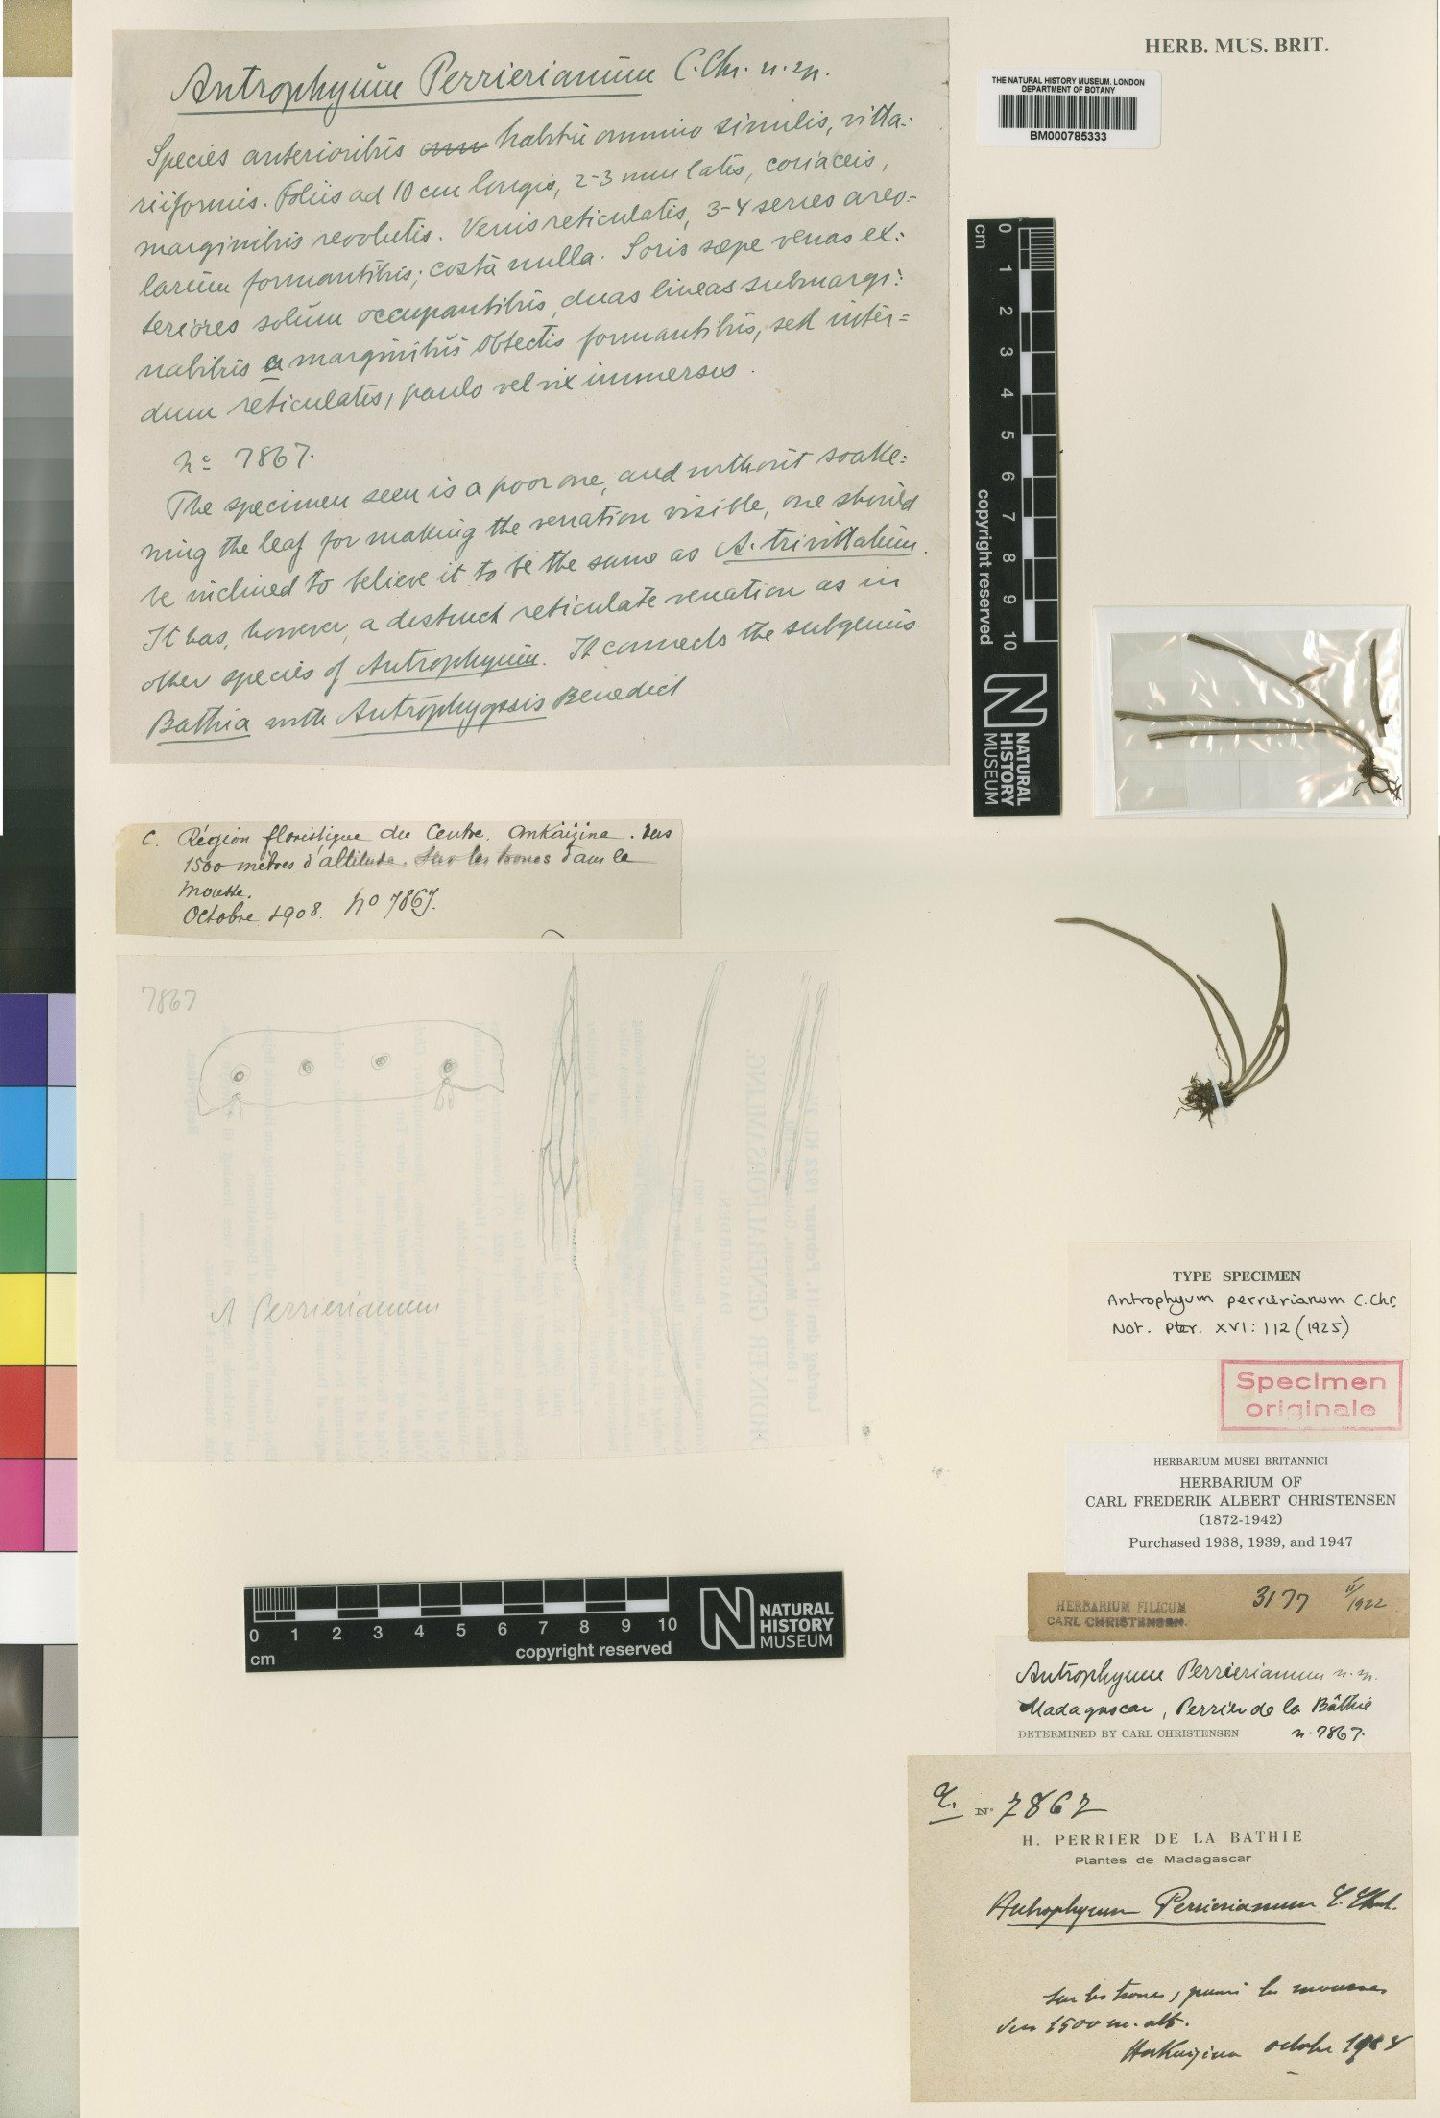 HERB. MUS. BRIT.
THE NATURAL HISTORY MUSEUM, LONDON
DEPARTMENT OF BOTANY
BM000785333
Antrophyum Perrierianum C.Chr. n.sp.
Species anterioribus habitu omnino similis, vitta:
riiformis. Foliis ad 10 cm longis, 2-3 mm latis, coriaceis,
marginibus revolutis. Venis reticulatis, 3-4 series areo=
larum formantibus; costa nulla. Soris sæpe venas ex:
teriores solum occupantibus, duas lineas submargi:
nalibus a marginibus obtectis formantibus, sed inter=
dum reticulatis, paulo vel vix immersis.
No 7867.
The specimen seen is a poor one, and without soake:
ning the leaf for making the venation visible, one should
be inclined to believe it to be the same as A. trivittatum.
It has, however, a distinct reticulate venation as in
other species of Antrophyum. It connects the subgenus
Bathia with Antrophyopsis Benedict
0 1 2 3 4 5 6 7 8 9 10
cm
copyright reserved
NATURAL
HISTORY
MUSEUM
C. Région floristique du Centre. Ankaizina. vers
1500 mètres d'altitude. Sur les troncs dans la
mousse.
Octobre 1908. No 7867.
7867
A Perrierianum
TYPE SPECIMEN
Antrophyum perrierianum C.Chr.
Not. Pter. XVI: 112 (1925)
Specimen
originale
HERBARIUM MUSEI BRITANNICI
HERBARIUM OF
CARL FREDERIK ALBERT CHRISTENSEN
(1872-1942)
Purchased 1938, 1939, and 1947
HERBARIUM FILICUM
CARL CHRISTENSEN.
3177 II/1922
0 1 2 3 4 5 6 7 8 9 10
cm
copyright reserved
NATURAL
HISTORY
MUSEUM
Antrophyum Perrierianum n. sp.
Madagascar, Perrier de la Bâthie
DETERMINED BY CARL CHRISTENSEN n. 7867.
No 7867
H. PERRIER DE LA BATHIE
Plantes de Madagascar
Antrophyum Perrierianum C. Christ.
Sur les troncs, parmi les mousses
vers 1500 m. alt.
octobre